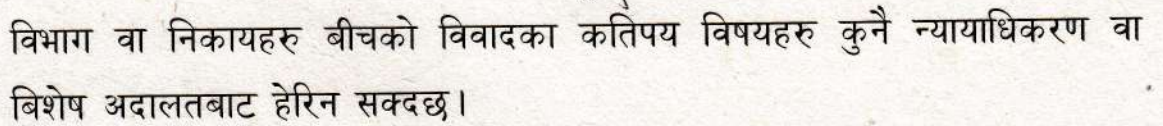 विभाग वा निकायहरु बीचको विवादका कतिपय विषयहरु कुनै न्यायाधिकरण वा
बिशेष अदालतबाट हेरिन सक्दछ।